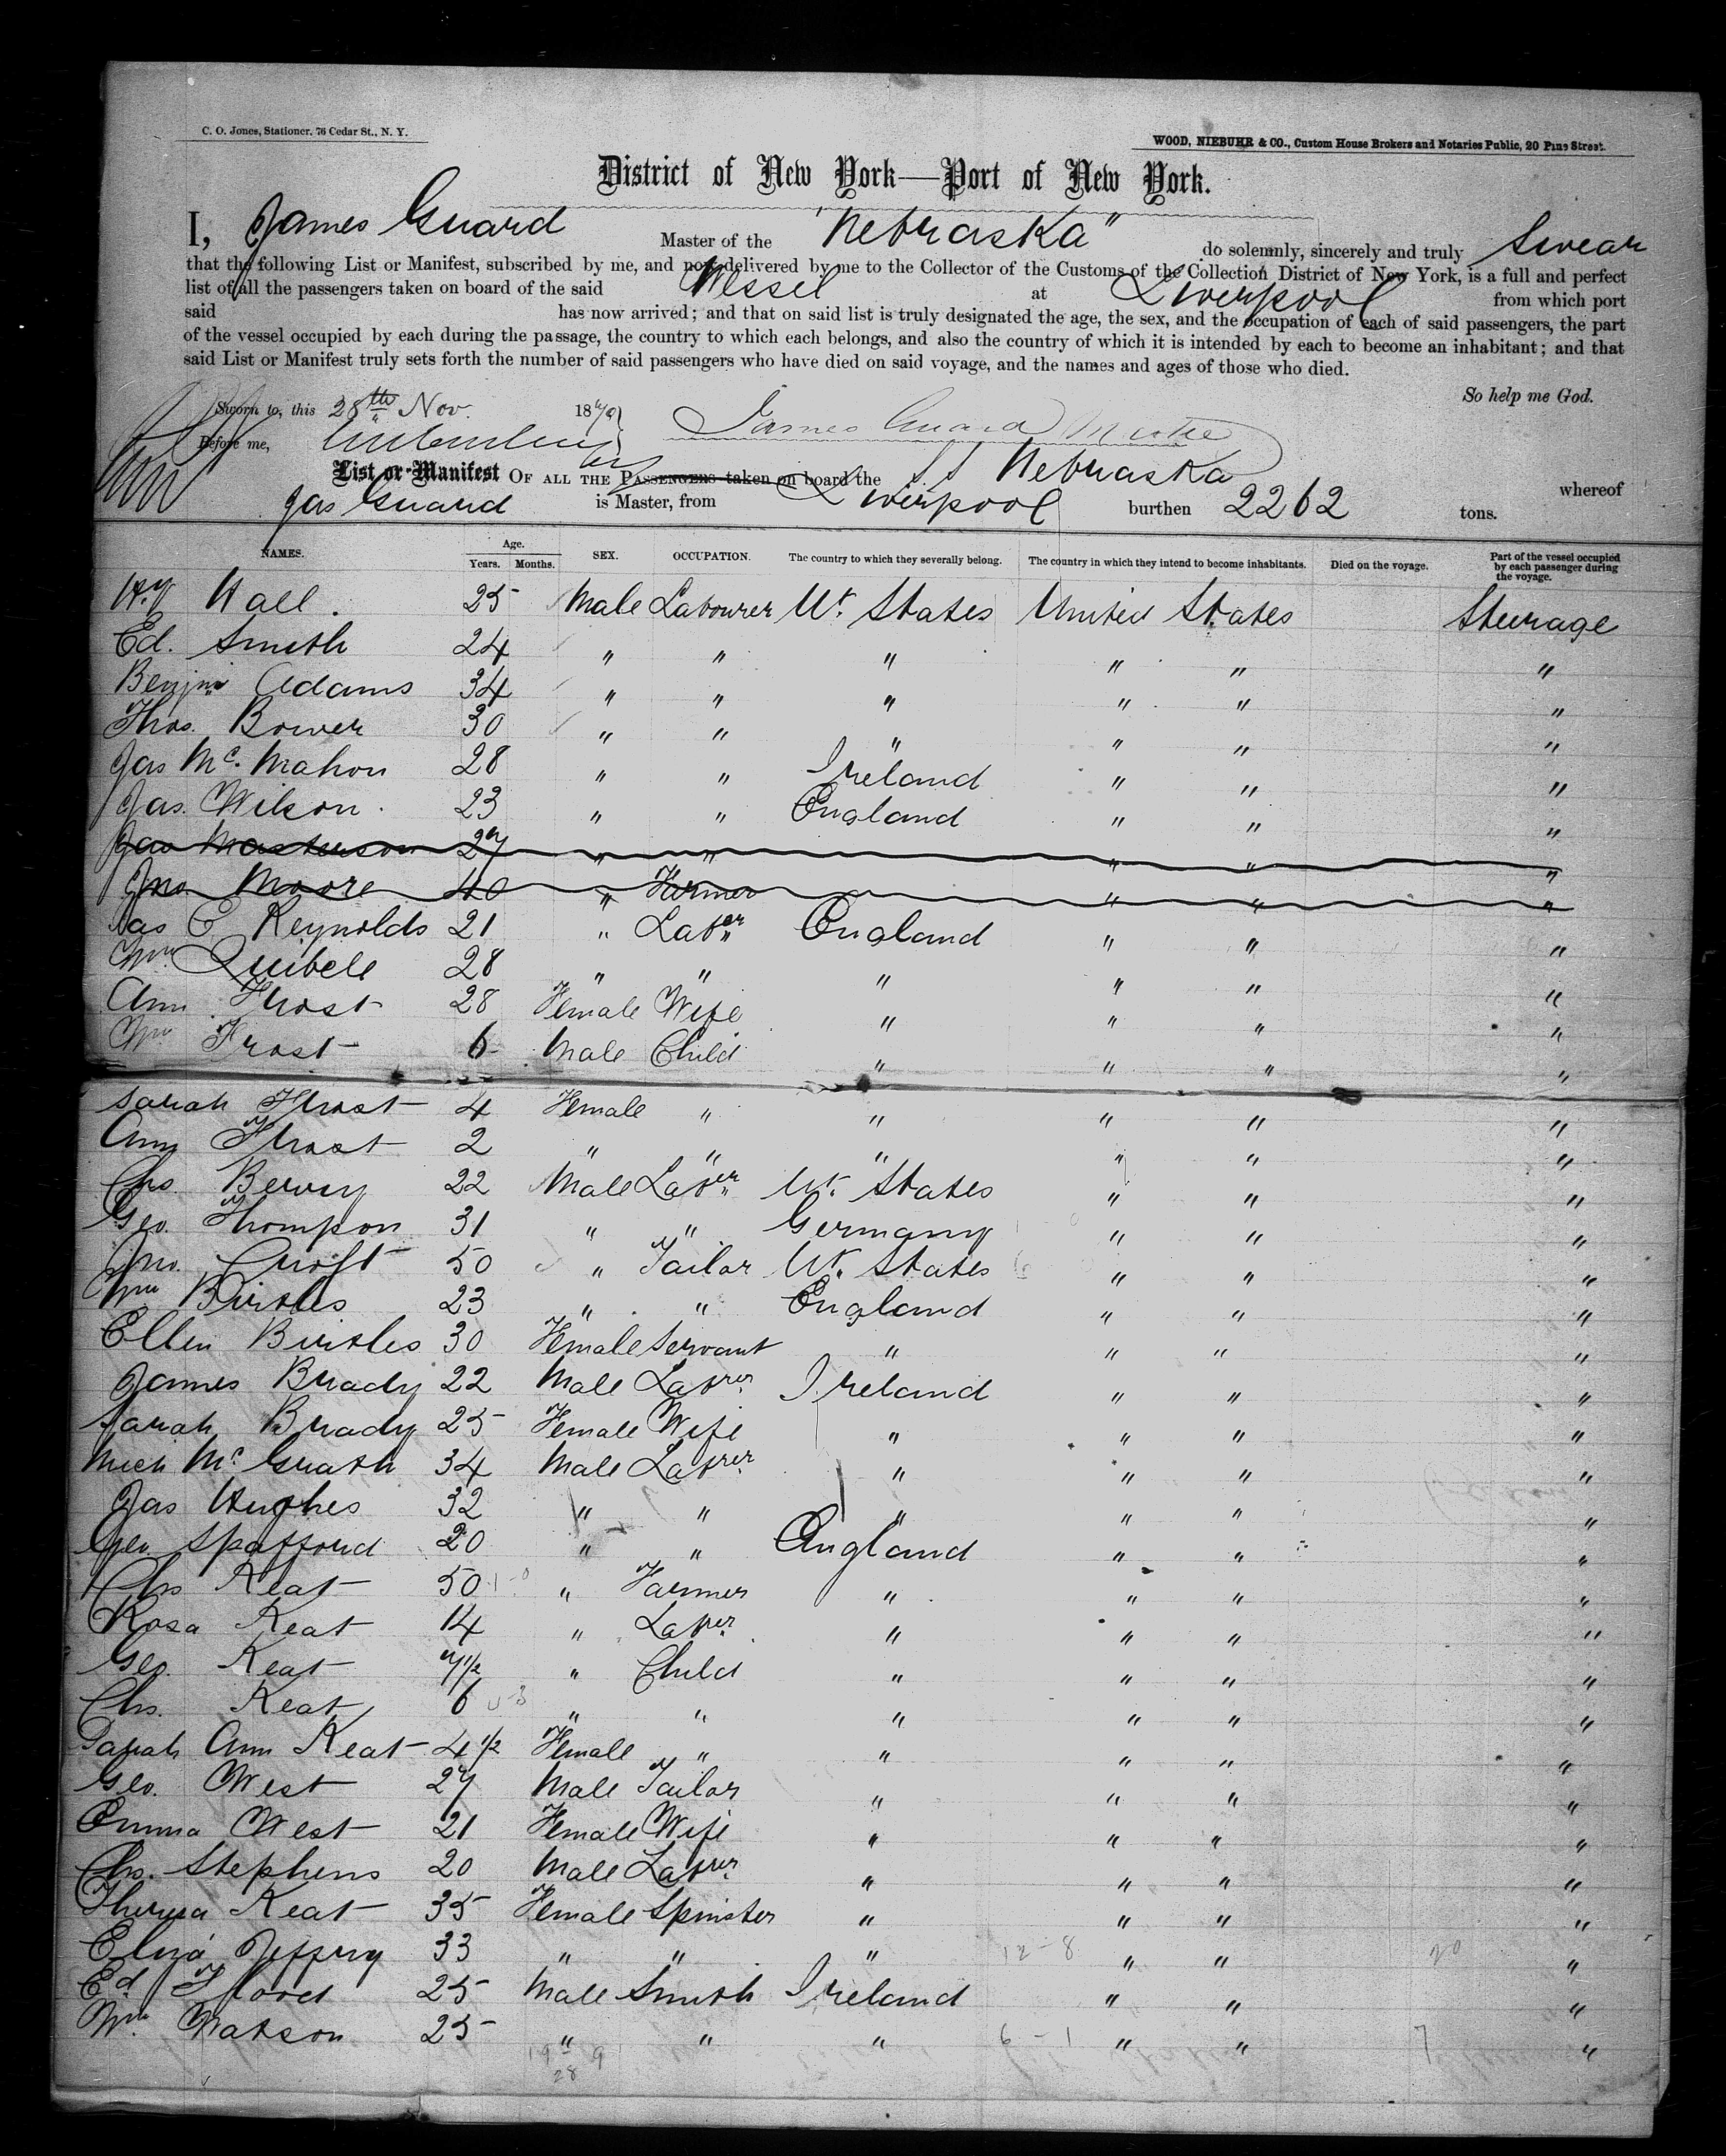 C. O. Jones, Stationer, 76 Cedar St., N. Y.
WOOD, NIEBUHR & CO., Custom House Brokers and Notaries Public, 20 Pine Street.
District of New York—Port of New York.
I, James Guard Master of the "Nebraska" do solemnly, sincerely and truly Swear
that the following List or Manifest, subscribed by me, and now delivered by me to the Collector of the Customs of the Collection District of New York, is a full and perfect
list of all the passengers taken on board of the said Vessel at Liverpool from which port
said has now arrived; and that on said list is truly designated the age, the sex, and the occupation of each of said passengers, the part
of the vessel occupied by each during the passage, the country to which each belongs, and also the country of which it is intended by each to become an inhabitant; and that
said List or Manifest truly sets forth the number of said passengers who have died on said voyage, and the names and ages of those who died.
So help me God.
Sworn to, this 28th Nov. 18
Before me, James Guard
List or Manifest OF ALL THE PASSENGERS taken on board the SS Nebraska whereof
Jas Guard is Master, from Liverpool burthen 2262 tons.
NAMES. Age. Years. Months. SEX. OCCUPATION. The country to which they severally belong. The country in which they intend to become inhabitants. Died on the voyage. Part of the vessel occupied by each passenger during the voyage.
Hy Hall. 25 Male Labourer Ut. States United States Steerage
Ed. Smith 24 " " " " " "
Benjm Adams 34 " " " " " "
Thos. Bower 30 " " " " " "
Jas Mc. Mahon 28 " " Ireland " " "
Jas. Wilson. 23 " " England " " "
Jas Masterson 27 " " " " "
Jno. Moore 40 " Farmer " " "
Jas C Reynolds 21 " Laber England " " "
Wm Quibell 28 " " " " " "
Ann Frost 28 Female Wife " " " "
Wm Frost 6 Male Child " " " "
Sarah Frost 4 Female " " " " "
Ann Frost 2 " " " " " "
Chs. Berry 22 Male Laber Ut. States " " "
Geo. Thompson 31 " " Germany " " "
Jno. Croft 50 " Tailor Ut. States " " "
Wm Birtles 23 " " England " " "
Ellen Birtles 30 Female Servant " " " "
James Brady 22 Male Labrer Ireland " " "
Sarah Brady 25 Female Wife " " " "
Mich Mc Grath 34 Male Labrer " " " "
Jas Hughes 32 " " " " " "
Geo Spafford 20 " " England " " "
Chs Keat 50 " Farmer " " " "
Rosa Keat 14 " Laber " " " "
Geo. Keat 7 1/2 " Child " " " "
Chs. Keat 6 " " " " " "
Sarah Ann Keat 4 1/2 Female " " " " "
Geo. West 27 Male Tailor " " " "
Emma West 21 Female Wife " " " "
Chs. Stephens 20 Male Labrer " " " "
Theresa Keat 35 Female Spinster " " " "
Eliza Jeffery 33 " " " 12-8 " " 20 "
Ed. Flood 25 Male Smith Ireland " " "
Wm Watson 25 " " " 6-1 " " 7 "
19 9
28